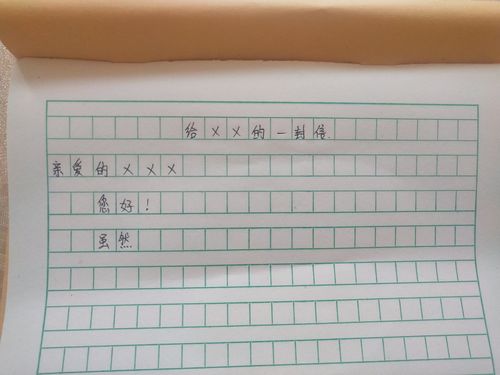 给××的一封信
亲爱的×××
您好!
虽然